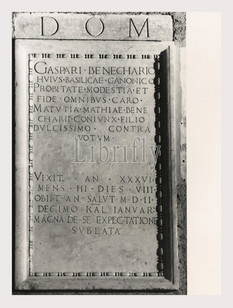 D O M
GASPARI · BENECHARIO
HVIVS · BASILICAE · CANONICO
PROBITATE · MODESTIA · ET
FIDE · OMNIBVS · CARO ·
MATVTIA · MATHIAE · BENE
CHARII · CONIVNX · FILIO
DVLCISSIMO · CONTRA
VOTVM ·
Librifly
VIXIT · AN · XXXVI
MENS · III · DIES · VIII
OBIIT · AN · SALVT · M · D · II ·
DECIMO · KAL · IANVAR ·
MAGNA · DE · SE · EXPECTATIONE
SVBLATA